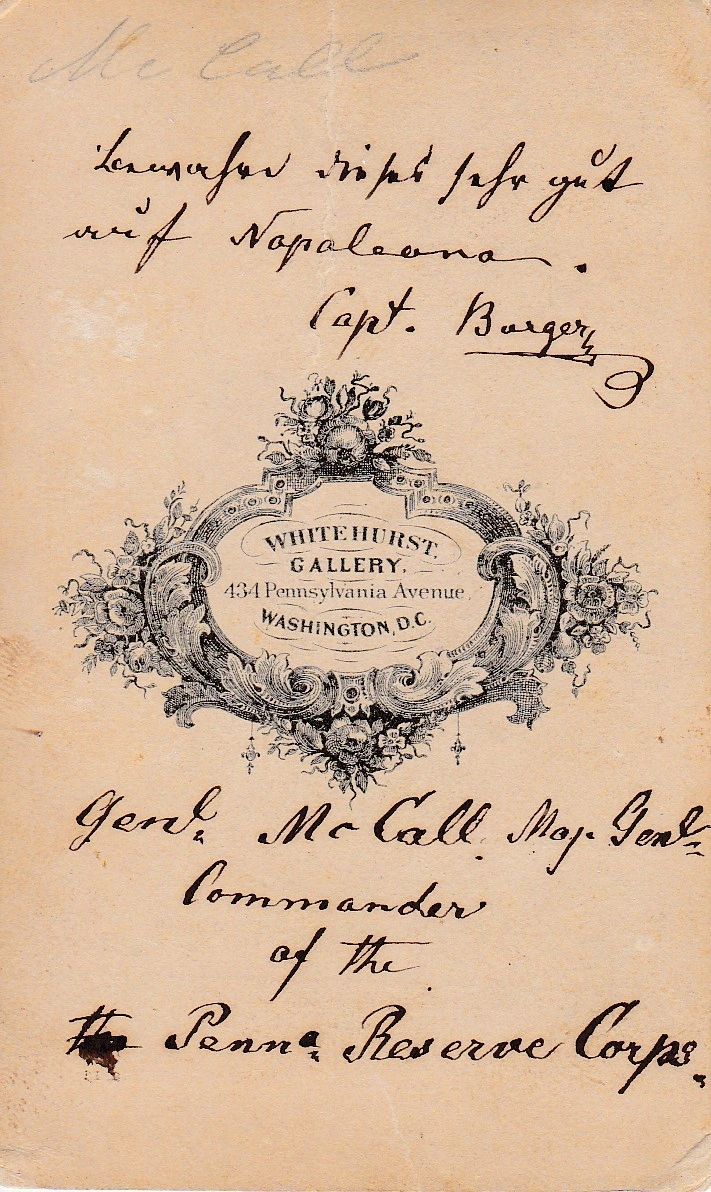 Mc Call
bewahre dieses sehr gut
auf Napoleona.
Capt. Burger
WHITEHURST,
GALLERY,
434 Pennsylvania Avenue,
WASHINGTON, D.C.
Genl. Mc Call. Maj. Genl.
Commander
of the
the Penna. Reserve Corps.